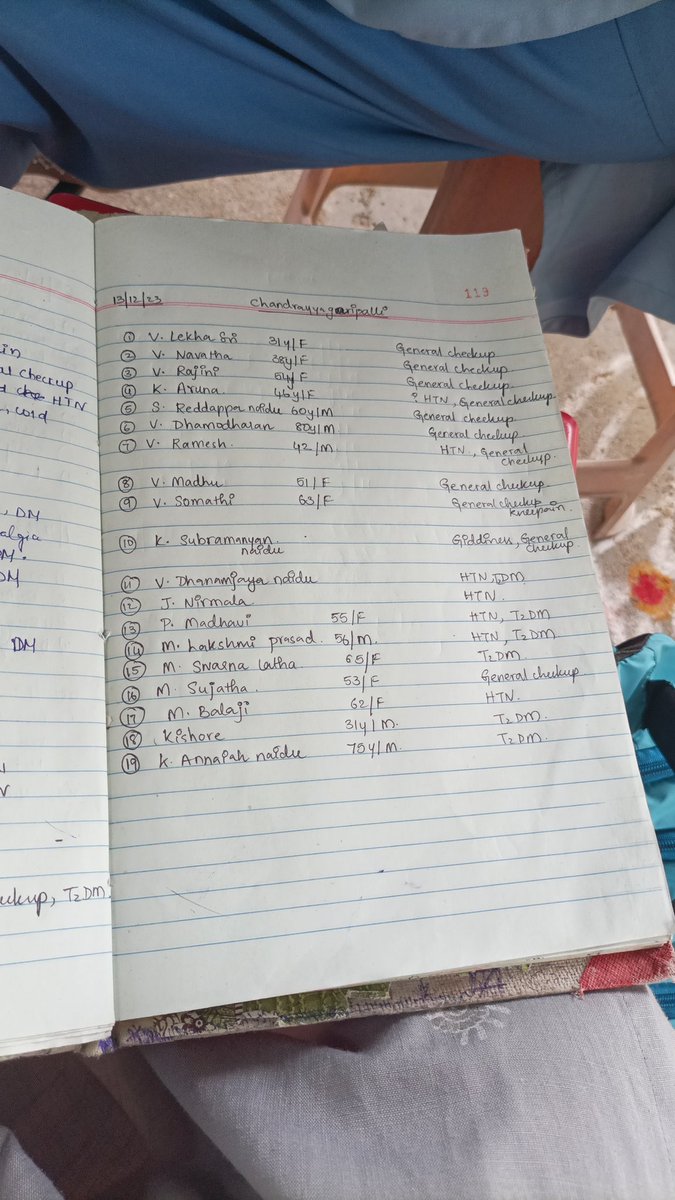 in
al checkup
HTN
, cold
, DM
algia
DM.
DM
DM
V
eckup, T2DM
119
13/12/23 Chandrayyagaripalli
① V. Lekha Sri 31y/F General checkup
② V. Navatha 38y/F General checkup
③ V. Rajini 54y/F General checkup
④ K. Aruna 46y/F ? HTN, General checkup
⑤ S. Reddappa naidu 60y/M General checkup
⑥ V. Dhamodharan 80y/M General checkup
⑦ V. Ramesh. 42/M. HTN, General
checkup.
⑧ V. Madhu 51/F General checkup
⑨ V. Somathi 63/F General checkup
kneepain.
⑩ K. Subramanyan Giddiness, General
naidu checkup
⑪ V. Dhanamjaya naidu HTN, DM
⑫ J. Nirmala HTN.
⑬ P. Madhavi 55/F HTN, T2DM
⑭ M. Lakshmi prasad. 56/M. HTN, T2DM
⑮ M. Swasna latha 65/F T2DM.
⑯ M. Sujatha. 53/F General checkup
⑰ M. Balaji 62/F HTN.
⑱ Kishore 31y/M. T2DM.
⑲ K. Annaiah naidu 75y/M. T2DM.